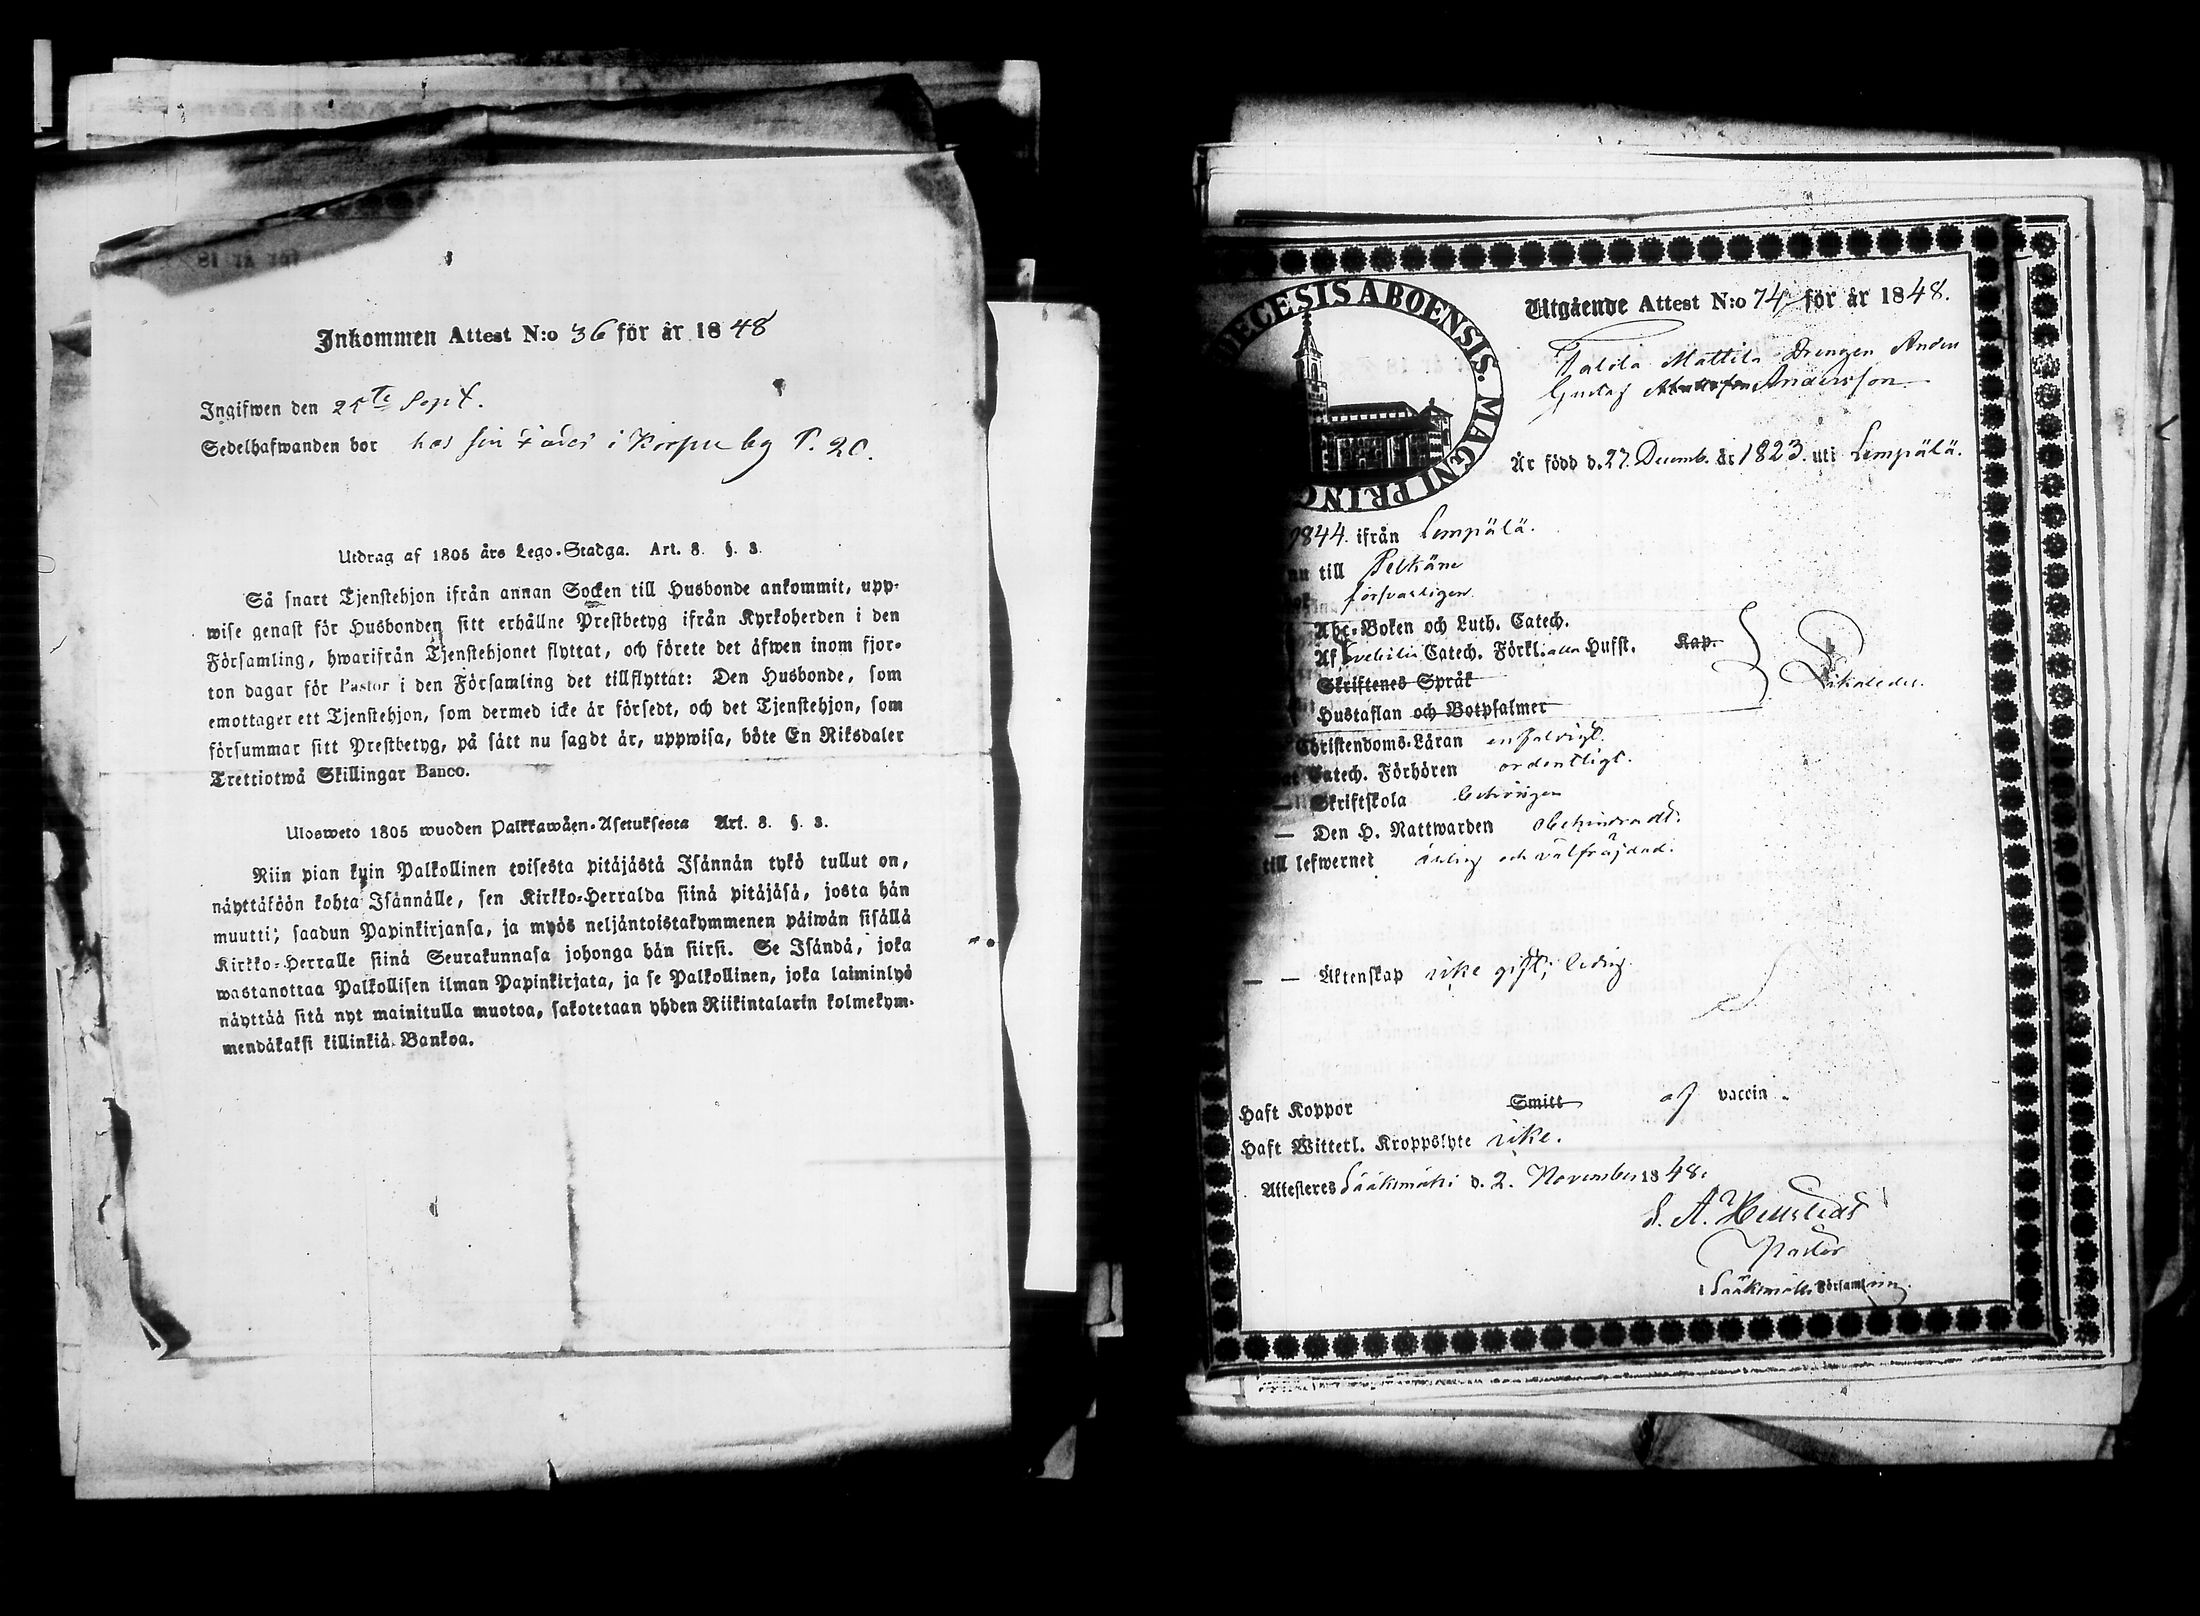 Inkommen Attest N:o 36 för år 1848
Ingifwen den 25te Sept.
Sedelhafwanden bor hos sin Fader i Korpu by P. 20.
Utdrag af 1805 års Lego-Stadga. Art. 8. §. 3.
Så snart Tjenstehjon ifrån annan Socken till Husbonde ankommit, upp-
wise genast för Husbonden sitt erhållne Prestbetyg ifrån Kyrkoherden i den
Församling, hwarifrån Tjenstehjonet flyttat, och förete det äfwen inom fjor-
ton dagar för Pastor i den Församling det tillflyttat: Den Husbonde, som
emottager ett Tjenstehjon, som dermed icke är försedt, och det Tjenstehjon, som
försummar sitt Prestbetyg, på sätt nu sagdt är, uppwisa, böte En Riksdaler
Trettiotwå Skillingar Banco.
Ulosweto 1805 wuoden Palkkawäen-Asetuksesta Art. 8. §. 3.
Niin pian kuin Palkollinen toisesta pitäjästä Isännän tykö tullut on,
näyttäköön kohta Isännälle, sen Kirkko-Herralda siinä pitäjäsä, josta hän
muutti; saadun Papinkirjansa, ja myös neljäntoistakymmenen päiwän sisällä
Kirkko-Herralle siinä Seurakunnasa johonga hän siirsi. Se Isändä, joka
wastanottaa Palkollisen ilman Papinkirjata, ja se Palkollinen, joka laiminlyö
näyttää sitä nyt mainitulla muotoa, sakotetaan yhden Riikintalarin kolmekym-
mendäkaksi killinkiä Bankoa.
DECESIS ABOENSIS. MAGNI PRINC
Utgående Attest N:o 74 för år 1848.
Mattila Drengen
Gustaf Andersson
Är född d. 27. Decemb. år 1823. uti Lempälä.
1844. ifrån Lempälä.
nu till Pelkäne
försvarligen
Abc-Boken och Luth. Catech.
Af Svebilii Catech. Förkl. Hufst. Kap.
Skriftenes Språk
Hustaflan och Botpsalmer
Christendoms-Läran enfaldigt.
Catech. Förhören ordentligt.
Skriftskola behörigen
— Den H. Nattwarden obehindradt.
till lefwernet ärlig och välfräjdad.
— — Äktenskap icke gift; ledig.
Haft Koppor Smitt af vaccin.
Haft Witterl. Kroppslyte icke.
Attesteres Sääksmäki d. 2. November 1848.
Pastor
i Sääksmäki Församling.